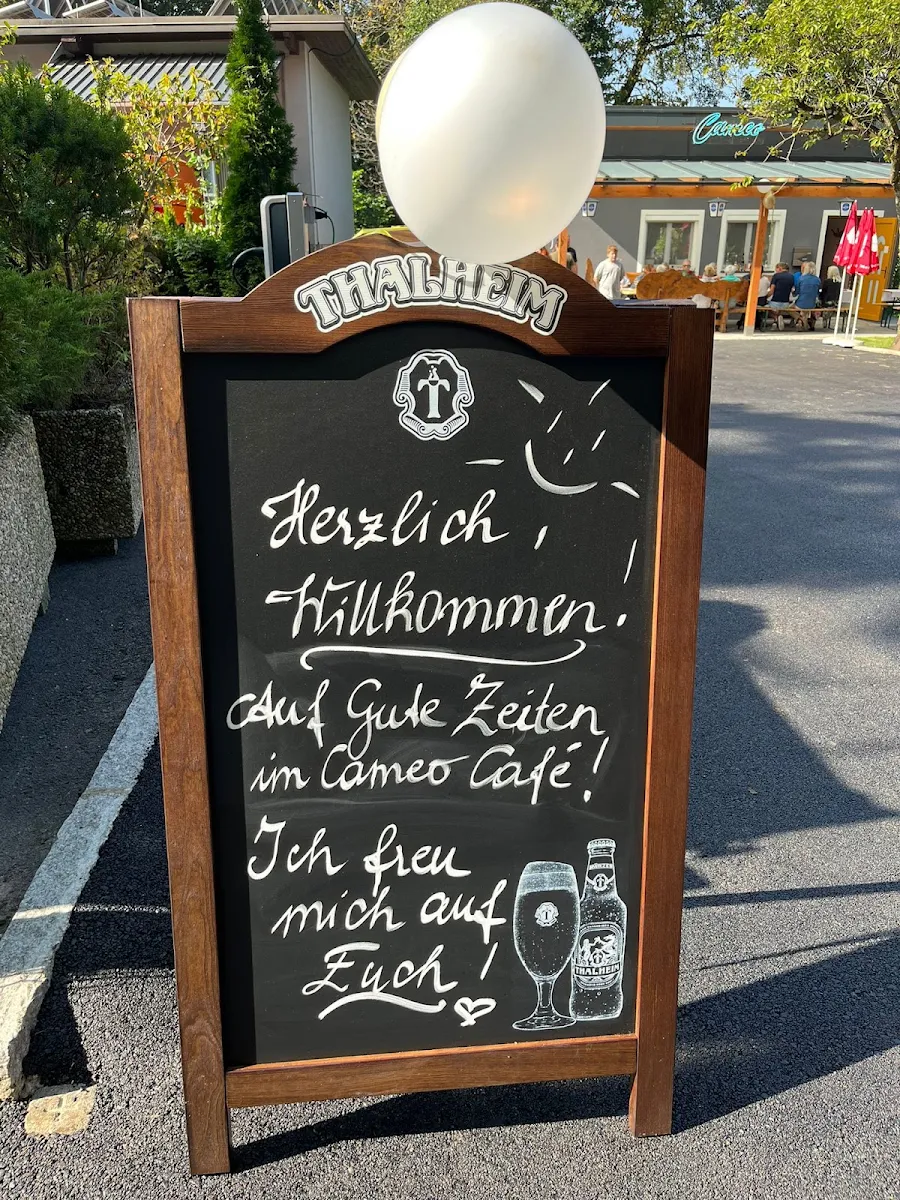 Cameo
THALHEIM
T
Herzlich
Willkommen!
Auf Gute Zeiten
im Cameo Café!
Ich freu
mich auf
Euch!
T
THALHEIM